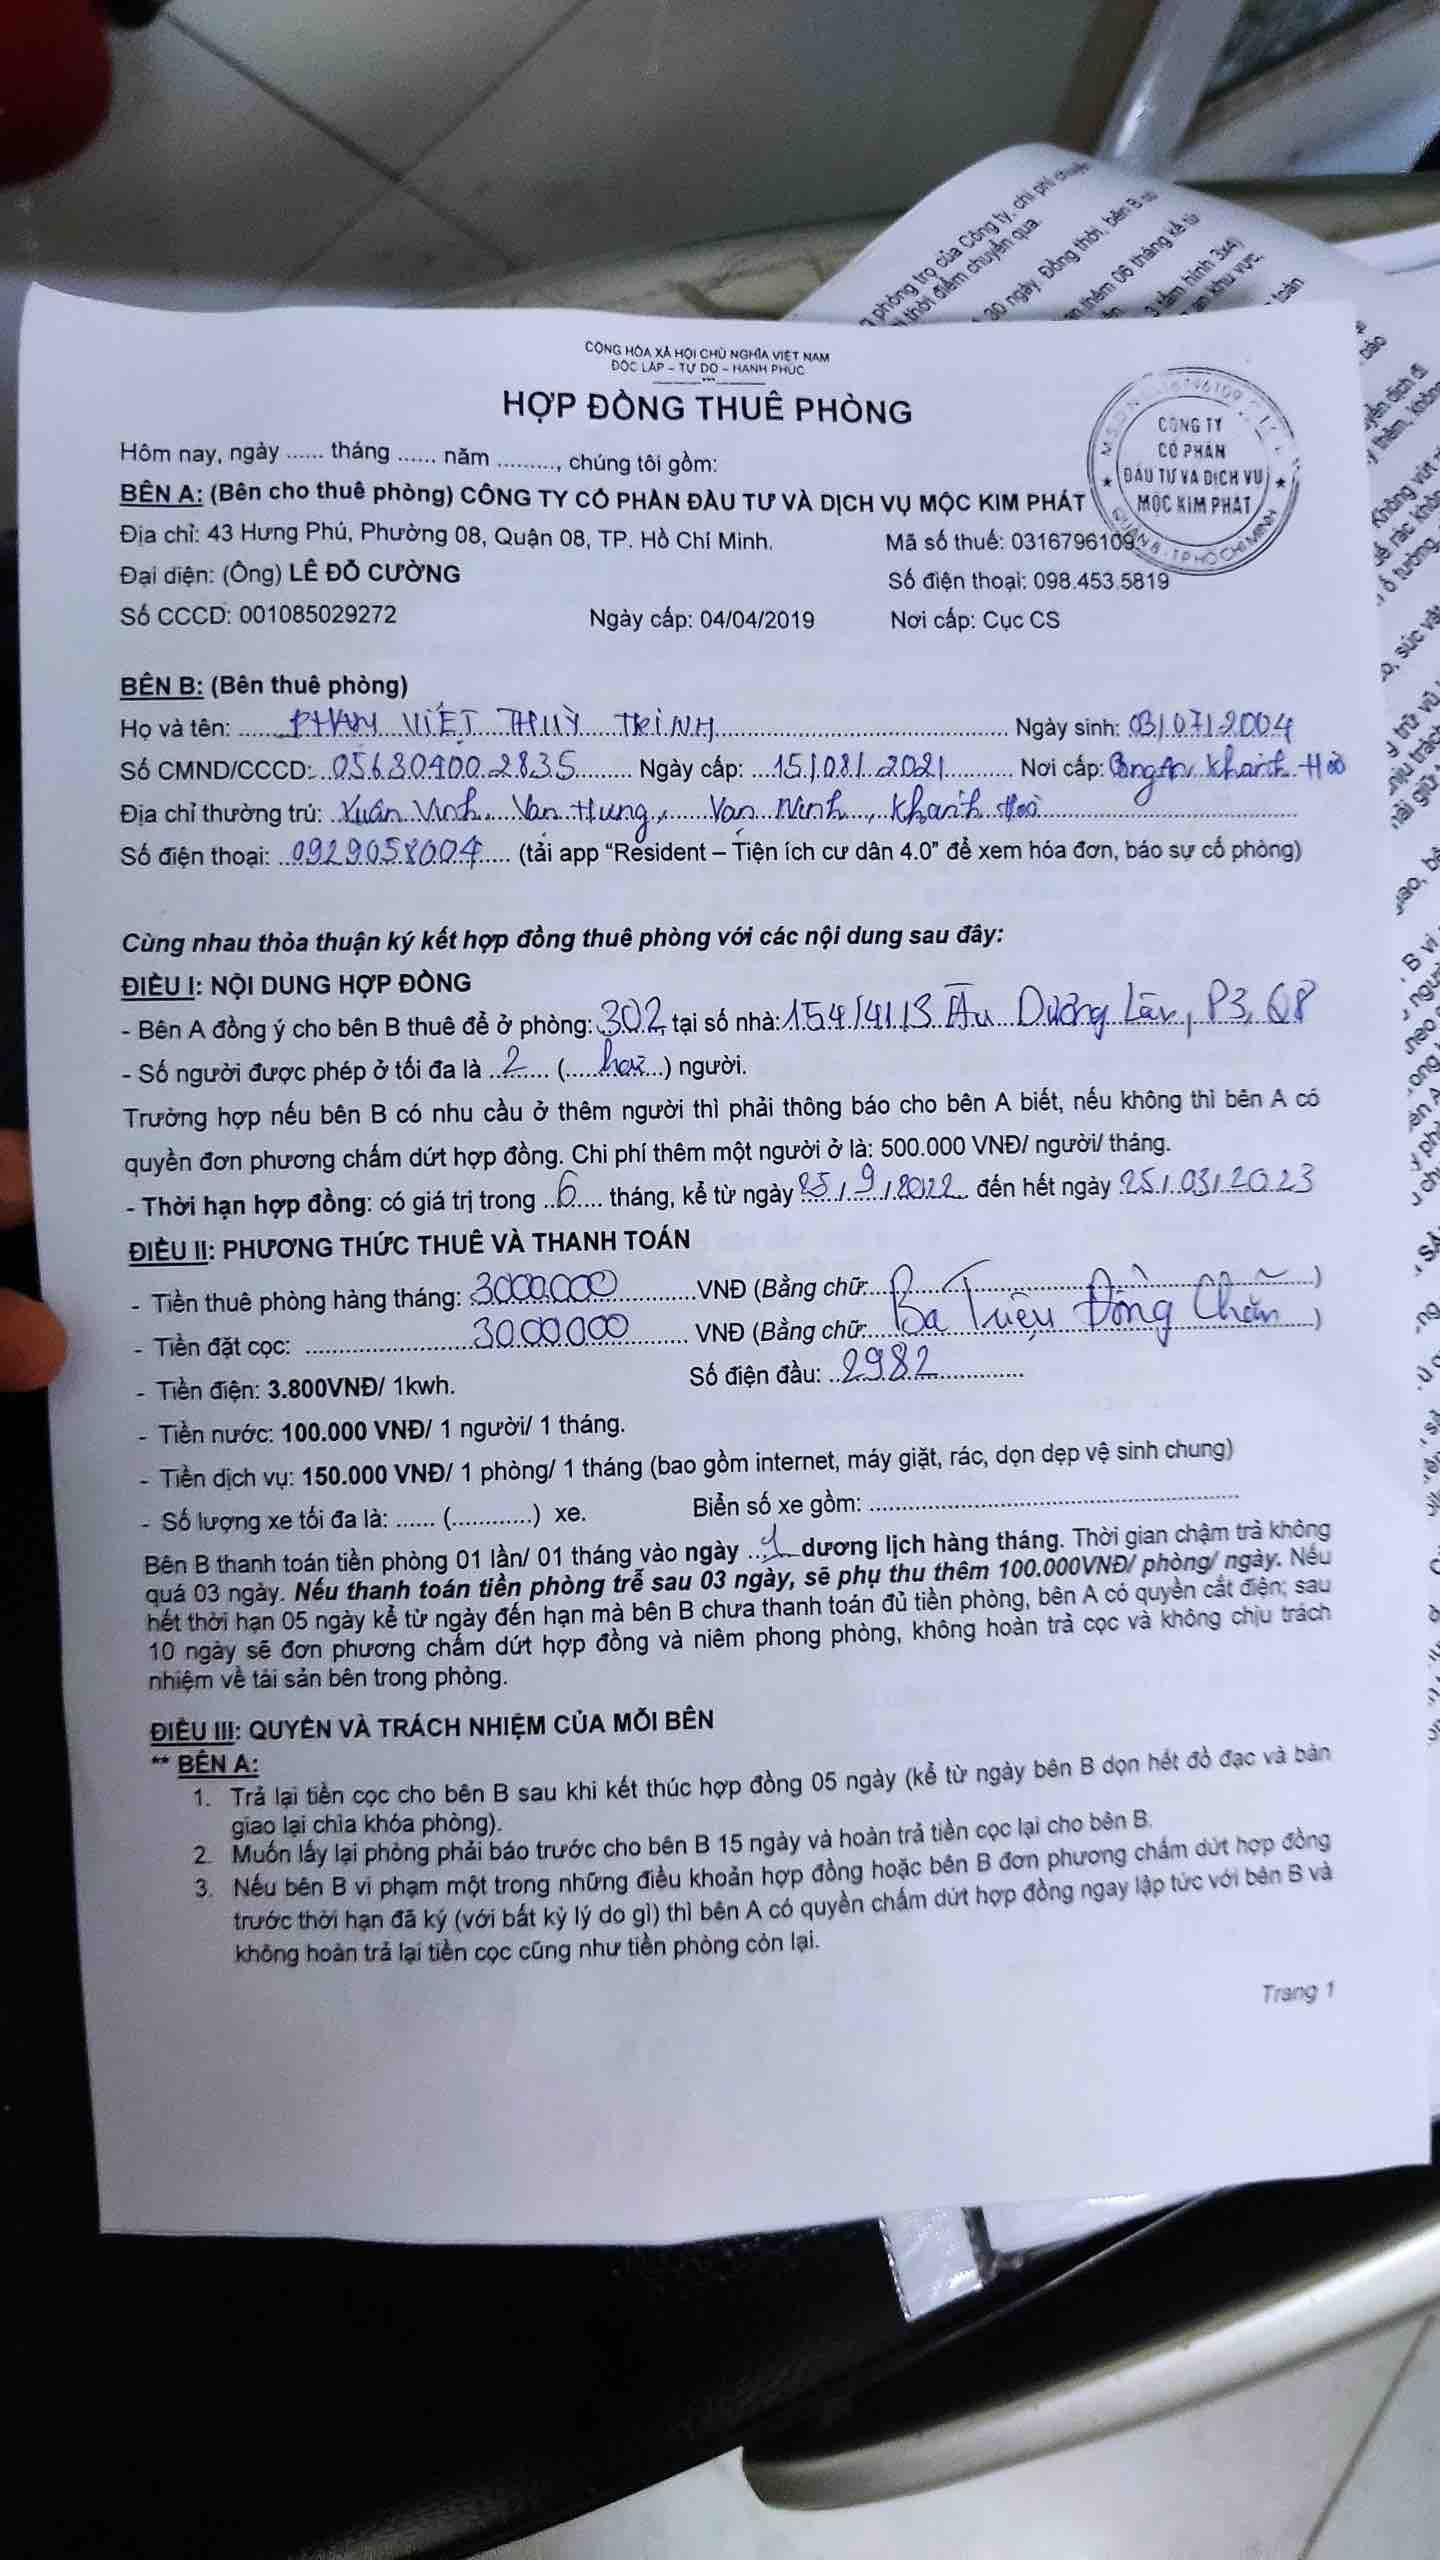 CỘNG HÒA XÃ HỘI CHỦ NGHĨA VIỆT NAM
ĐỘC LẬP – TỰ DO – HẠNH PHÚC
HỢP ĐỒNG THUÊ PHÒNG
CÔNG TY
CỔ PHẦN
ĐẦU TƯ VÀ DỊCH VỤ
MỘC KIM PHÁT
QUẬN 8 - TP HỒ CHÍ MINH
Hôm nay, ngày ...... tháng ...... năm ........., chúng tôi gồm:
BÊN A: (Bên cho thuê phòng) CÔNG TY CỔ PHẦN ĐẦU TƯ VÀ DỊCH VỤ MỘC KIM PHÁT
Địa chỉ: 43 Hưng Phú, Phường 08, Quận 08, TP. Hồ Chí Minh. Mã số thuế: 0316796109
Đại diện: (Ông) LÊ ĐỖ CƯỜNG Số điện thoại: 098.453.5819
Số CCCD: 001085029272 Ngày cấp: 04/04/2019 Nơi cấp: Cục CS
BÊN B: (Bên thuê phòng)
Họ và tên: PHẠM VIỆT THUỲ TRINH Ngày sinh: 03/07/2004
Số CMND/CCCD: 056304002835 Ngày cấp: 15/08/2021 Nơi cấp: Công An Khánh Hoà
Địa chỉ thường trú: Xuân Vinh, Vạn Hưng, Vạn Ninh, Khánh Hoà
Số điện thoại: 0929058004 (tải app “Resident – Tiện ích cư dân 4.0” để xem hóa đơn, báo sự cố phòng)
Cùng nhau thỏa thuận ký kết hợp đồng thuê phòng với các nội dung sau đây:
ĐIỀU I: NỘI DUNG HỢP ĐỒNG
- Bên A đồng ý cho bên B thuê để ở phòng: 302 tại số nhà: 154/41/3 Âu Dương Lân, P3, Q8
- Số người được phép ở tối đa là 2 (hai) người.
Trường hợp nếu bên B có nhu cầu ở thêm người thì phải thông báo cho bên A biết, nếu không thì bên A có
quyền đơn phương chấm dứt hợp đồng. Chi phí thêm một người ở là: 500.000 VNĐ/ người/ tháng.
- Thời hạn hợp đồng: có giá trị trong 6 tháng, kể từ ngày 25/9/2022 đến hết ngày 25/03/2023
ĐIỀU II: PHƯƠNG THỨC THUÊ VÀ THANH TOÁN
- Tiền thuê phòng hàng tháng: 3000.000 VNĐ (Bằng chữ: )
- Tiền đặt cọc: 3000000 VNĐ (Bằng chữ: Ba Triệu Đồng Chẵn)
- Tiền điện: 3.800VNĐ/ 1kwh. Số điện đầu: 2982
- Tiền nước: 100.000 VNĐ/ 1 người/ 1 tháng.
- Tiền dịch vụ: 150.000 VNĐ/ 1 phòng/ 1 tháng (bao gồm internet, máy giặt, rác, dọn dẹp vệ sinh chung)
- Số lượng xe tối đa là: ...... (............) xe. Biển số xe gồm:
Bên B thanh toán tiền phòng 01 lần/ 01 tháng vào ngày 1 dương lịch hàng tháng. Thời gian chậm trả không
quá 03 ngày. Nếu thanh toán tiền phòng trễ sau 03 ngày, sẽ phụ thu thêm 100.000VNĐ/ phòng/ ngày. Nếu
hết thời hạn 05 ngày kể từ ngày đến hạn mà bên B chưa thanh toán đủ tiền phòng, bên A có quyền cắt điện; sau
10 ngày sẽ đơn phương chấm dứt hợp đồng và niêm phong phòng, không hoàn trả cọc và không chịu trách
nhiệm về tài sản bên trong phòng.
ĐIỀU III: QUYỀN VÀ TRÁCH NHIỆM CỦA MỖI BÊN
** BÊN A:
1. Trả lại tiền cọc cho bên B sau khi kết thúc hợp đồng 05 ngày (kể từ ngày bên B dọn hết đồ đạc và bàn
giao lại chìa khóa phòng).
2. Muốn lấy lại phòng phải báo trước cho bên B 15 ngày và hoàn trả tiền cọc lại cho bên B.
3. Nếu bên B vi phạm một trong những điều khoản hợp đồng hoặc bên B đơn phương chấm dứt hợp đồng
trước thời hạn đã ký (với bất kỳ lý do gì) thì bên A có quyền chấm dứt hợp đồng ngay lập tức với bên B và
không hoàn trả lại tiền cọc cũng như tiền phòng còn lại.
Trang 1
phòng trọ của Công ty, chi phí chuyển
thời điểm chuyển qua.
30 ngày. Đồng thời, bên B
thêm 06 tháng kể từ
tấm hình 3x4)
khu vực.
toán